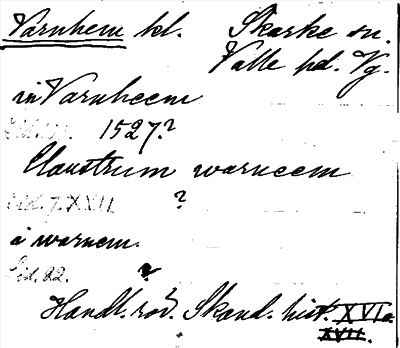 Varnhem kl. Skarke sn.
Valle hd. Vg.
in Varnheem
1527?
Claustrum warneem
Sid. 7. XXII ?
å warnem.
Sid. 22. ?
Handl. rör. Skand. hist. XVI
XVII.